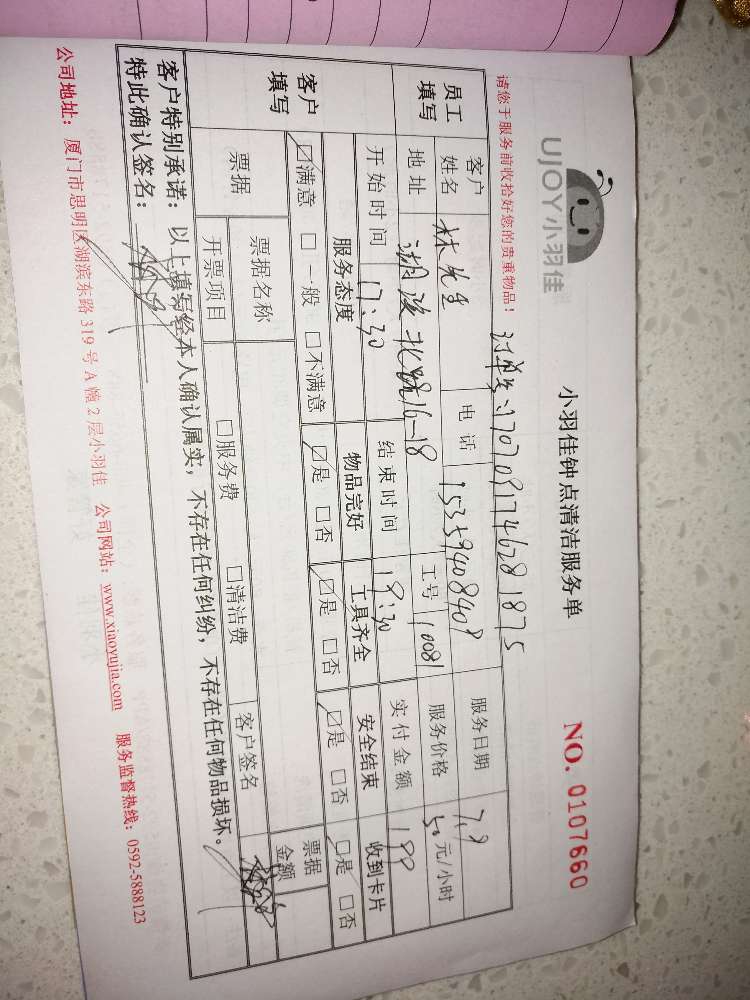 UJOY小羽佳
小羽佳钟点清洁服务单
NO. 0107660
请您于服务前收拾好您的贵重物品！
员工填写
客户姓名 林先生 电话 15359408408 服务日期 7.8
地址 湖滨北路16-18 工号 10081 服务价格 50元/小时
开始时间 17:30 结束时间 19:30 实付金额 100
客户填写
服务态度 物品完好 工具齐全 安全结束 收到卡片
☑满意 □一般 □不满意 ☑是 □否 ☑是 □否 ☑是 □否 ☑是 □否
票据 票据名称 客户签名 票据金额
开票项目 □服务费 □清洁费
客户特别承诺：以上填写经本人确认属实，不存在任何纠纷，不存在任何物品损坏。
特此确认签名：
公司地址：厦门市思明区湖滨东路319号A幢2层小羽佳 公司网站：www.xiaoyujia.com 服务监督热线：0592-5888123